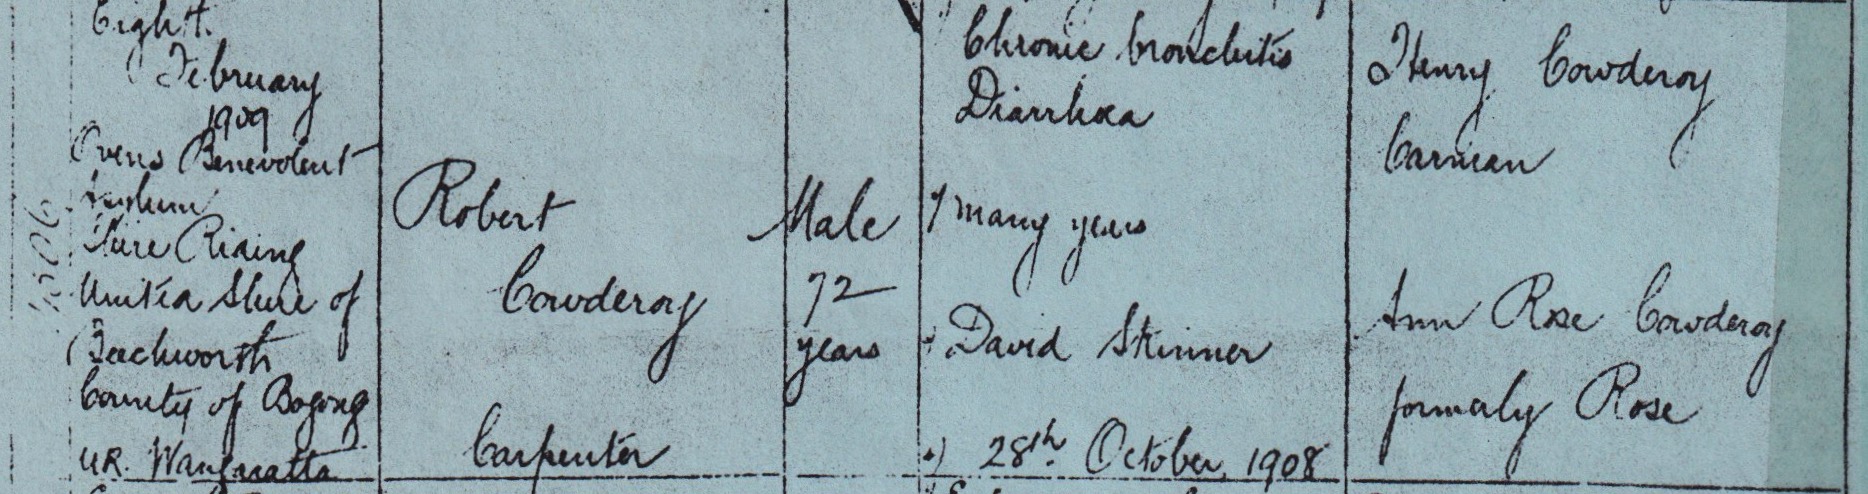 Eight.
February
1909
Ovens Benevolent
Asylum
Shire Riding
United Shire of
Beechworth
County of Bogong
UR. Wangaratta
Robert
Cowderoy
Carpenter
Male
72
years
Chronic bronchitis
Diarrhoea
many years
David Skinner
28th. October, 1908
Henry Cowderoy
Carman
Ann Rose Cowderoy
formerly Rose